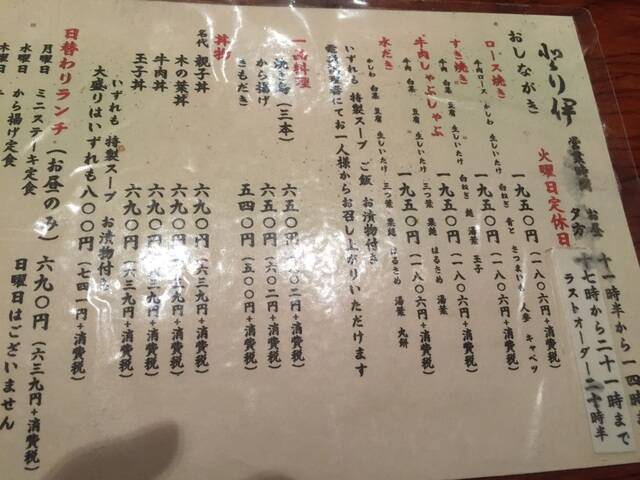 とり伊
おしながき
営業時間 お昼 十一時半から一四時ま
夕方 十七時から二十一時まで
ラストオーダー二十時半
火曜日定休日
ロース焼き 一九五〇円(一八〇六円+消費税)
牛肉ロース かしわ 生しいたけ 白ねぎ 青と さつまいも 人参 キャベツ
すき焼き 一九五〇円(一八〇六円+消費税)
牛肉 白菜 豆腐 生しいたけ 白ねぎ 麩 湯葉 玉子
牛肉しゃぶしゃぶ 一九五〇円(一八〇六円+消費税)
牛肉 白菜 豆腐 生しいたけ 三つ葉 粟麩 はるさめ 湯葉
水だき 一九五〇円(一八〇六円+消費税)
かしわ 白菜 豆腐 生しいたけ 三つ葉 粟麩 はるさめ 湯葉 丸餅
いずれも 特製スープ ご飯 お漬物付き
にてお一人様からお召し上がりいただけます
一品料理
(三本) 六五〇円
から揚げ 六五〇円(六〇二円+消費税)
きもだき 五四〇円(五〇〇円+消費税)
丼物
名代 親子丼 六九〇円(六三九円+消費税)
木の葉丼 六九〇円(六三九円+消費税)
牛肉丼 六九〇円(六三九円+消費税)
玉子丼 六九〇円(六三九円+消費税)
いずれも 特製スープ お漬物付き
大盛りはいずれも八〇〇円(七四一円+消費税)
日替わりランチ(お昼のみ) 六九〇円(六三九円+消費税)
月曜日 ミニステーキ定食 日曜日はございません
水曜日 から揚げ定食
木曜日